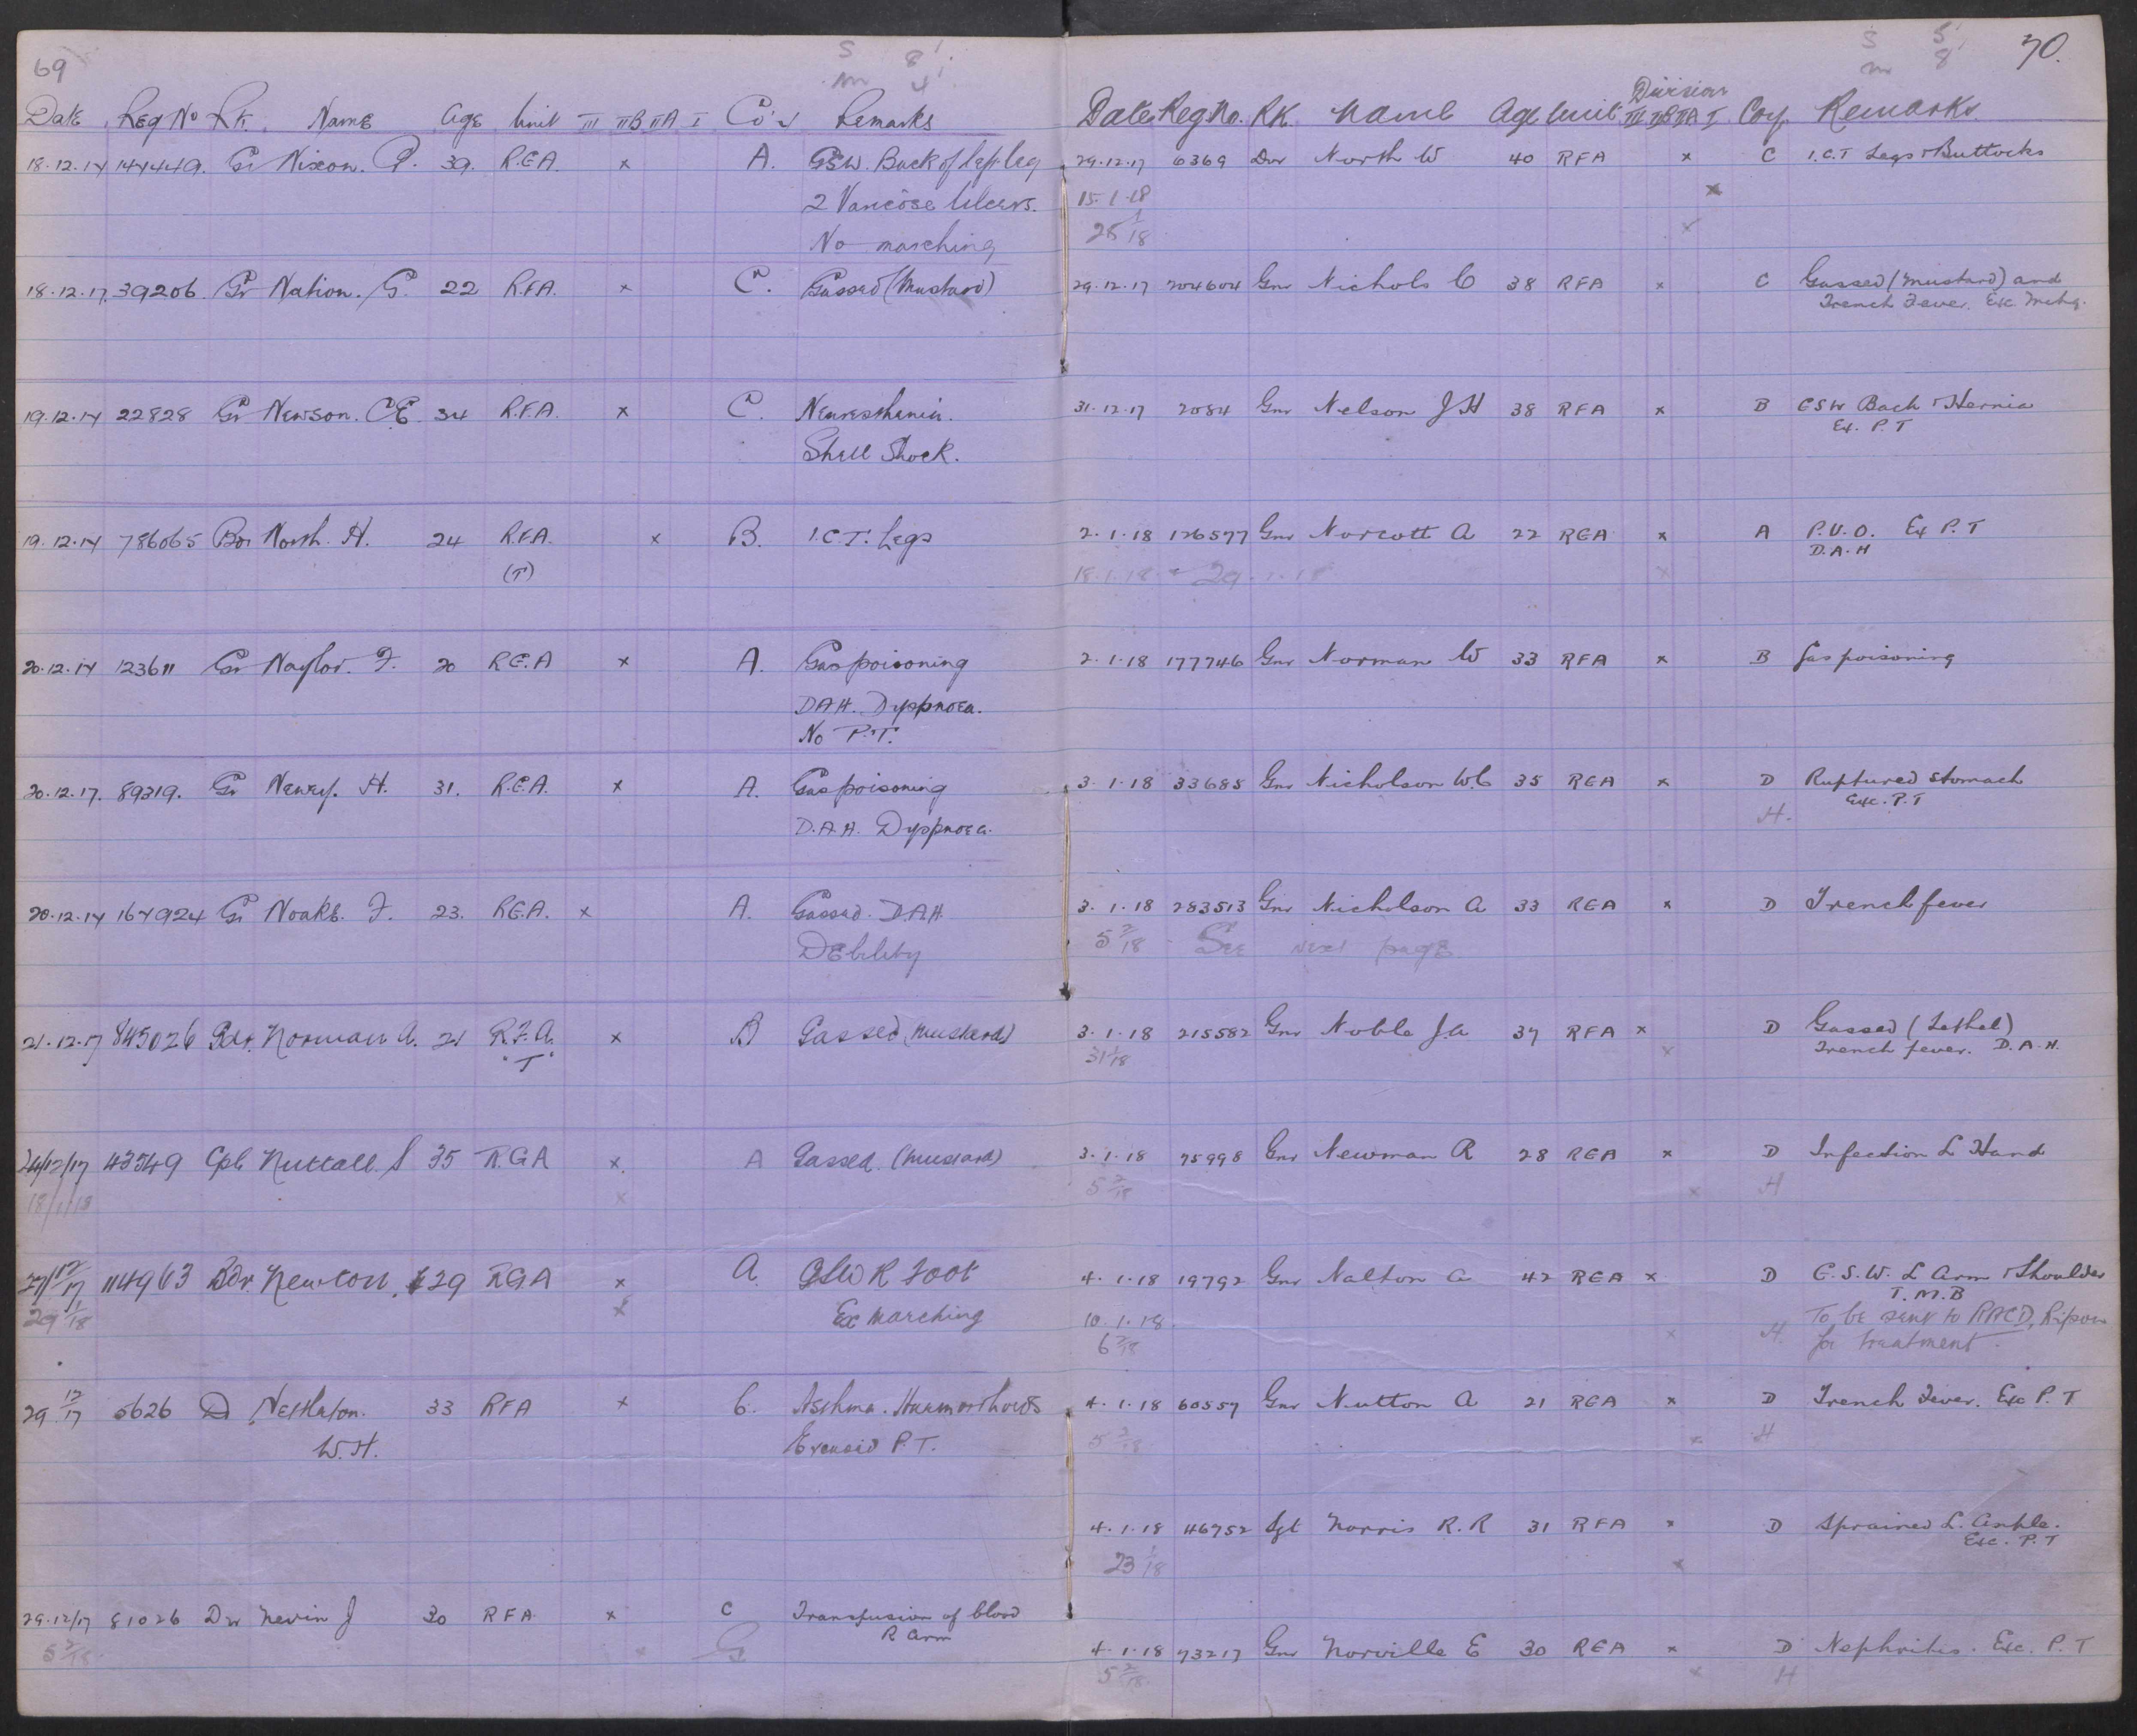 69
S 8
m 4
Date Reg No Rk. Name Age Unit III IIB IIA I Co'y Remarks
18.12.17 147449. Gr Nixon. P. 39. R.G.A. x A. GSW. Back of left leg
2 Varicose Ulcers.
No marching
18.12.17 39206 Gr Nation. G. 22 R.F.A. x C. Gassed (Mustard)
19.12.17 22828 Gr Newson. C E. 34 R.F.A. x C. Neuresthenia.
Shell Shock.
19.12.17 786065 Bdr North. H. 24 R.F.A. x B. I.C.T. Legs
(T)
20.12.17 123611 Gr Naylor. F. 20 R.G.A x A. Gas poisoning
DAH. Dyspnoea.
No P.T.
20.12.17. 89319. Gr Newey. H. 31. R.G.A. x A. Gas poisoning
D.A.H. Dyspnoea.
20.12.17 167924 Gr Noake. F. 23. R.G.A. x A. Gassed. D.A.H
Debility
21.12.17 845026 Bdr. Norman A. 21 R.F.A. x B Gassed (Mustard)
"T"
24/12/17 43549 Cpl Nuttall. S 35 R.G.A x. A Gassed. (Mustard)
18/1/18 x
27/12/17 114963 Bdr. Newton. 29 RGA x A. GSW R Foot
29 1/18 x Ex Marching
29 12/17 5626 D Nettleton. 33 RFA x C. Asthma. Haemorrhoids
W.H. Excused P.T.
29.12/17 81026 Dvr Nevin J 30 RFA x C Transfusion of blood
R Arm
5 2/18 x G
S 5
m 8
70.
Division
Date Reg No. RK. Name Age Unit III IIB IIA I Coy. Remarks
29.12.17 6369 Dvr North W 40 RFA x C I.C.T Legs & Buttocks
15.1.18 x
25 1/18 x
29.12.17 204604 Gnr Nichols C 38 RFA x C Gassed (Mustard) and
Trench Fever. Exc Mchg.
31.12.17 2084 Gnr Nelson J H 38 RFA x B GSW Back & Hernia
Ex. P.T
2.1.18 126577 Gnr Norcott A 22 RGA x A P.U.O. Ex P.T
D.A.H
18.1.18 29.1.18 x
2.1.18 177746 Gnr Norman W 33 RFA x B Gas poisoning
3.1.18 33685 Gnr Nicholson W.C 35 RGA x D Ruptured stomach
Exc. P.T
H.
3.1.18 283513 Gnr Nicholson A 33 RGA x D Trench fever
5 2/18 See next page
3.1.18 215582 Gnr Noble J.A 37 RFA x D Gassed (Lethel)
Trench fever. D.A.H.
31 1/18 x
3.1.18 75998 Gnr Newman R 28 RGA x D Infection L Hand
5 2/18 x H
4.1.18 19792 Gnr Nalton A 42 RGA x D G.S.W. L Arm & Shoulder
T.M.B
10.1.18 To be sent to RACD, Ripon
6 2/18 x H. for treatment.
4.1.18 60557 Gnr Nutton A 21 RGA x D Trench Fever. Exc P.T
5 2/18 x H
4.1.18 46752 Sgt Norris R.R 31 RFA x D Sprained L. Ankle.
Exc. P.T
23 1/18 x
4.1.18 73217 Gnr Norville E 30 RGA x D Nephritis. Exc. P.T
5 2/18. x H